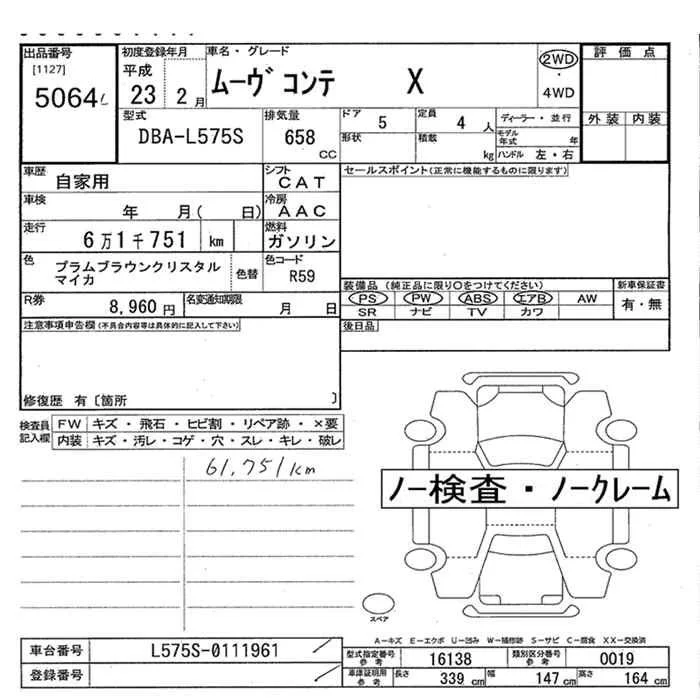 出品番号 初度登録年月 車名・グレード 評価点
[1127] 平成 ムーヴ コンテ X 2WD
5064 23 2月 ・ 4WD
外装 内装
型式 排気量 ドア 5 定員 4人 ディーラー・並行
DBA-L575S 658 CC 形状 積載 kg モデル年式 年
ハンドル 左・右
車歴 自家用 シフト CAT セールスポイント(正常に機能するものに限ります)
車検 年 月( 日) 冷房 AAC
走行 6万1千751 km 燃料 ガソリン
色 プラムブラウンクリスタル 色替 色コード R59
マイカ
装備品 (純正品に限り○をつけてください) 新車保証書
PS PW ABS エアB AW 有・無
SR ナビ TV カワ
R券 8,960円 名変通知期限 月 日
後日品
注意事項申告欄(不具合内容等は具体的に記入して下さい)
修復歴 有〔箇所 〕
検査員記入欄 FW キズ・飛石・ヒビ割・リペア跡・×要
内装 キズ・汚レ・コゲ・穴・スレ・キレ・破レ
61,751km
ノー検査・ノークレーム
スペア
A-キズ E-エクボ U-凹み W-補修跡 S-サビ C-腐食 XX-交換済
車台番号 L575S-0111961
登録番号
型式指定番号 参考 16138 類別区分番号 参考 0019
車庫証明用 参考 長さ 339 cm 幅 147 cm 高さ 164 cm